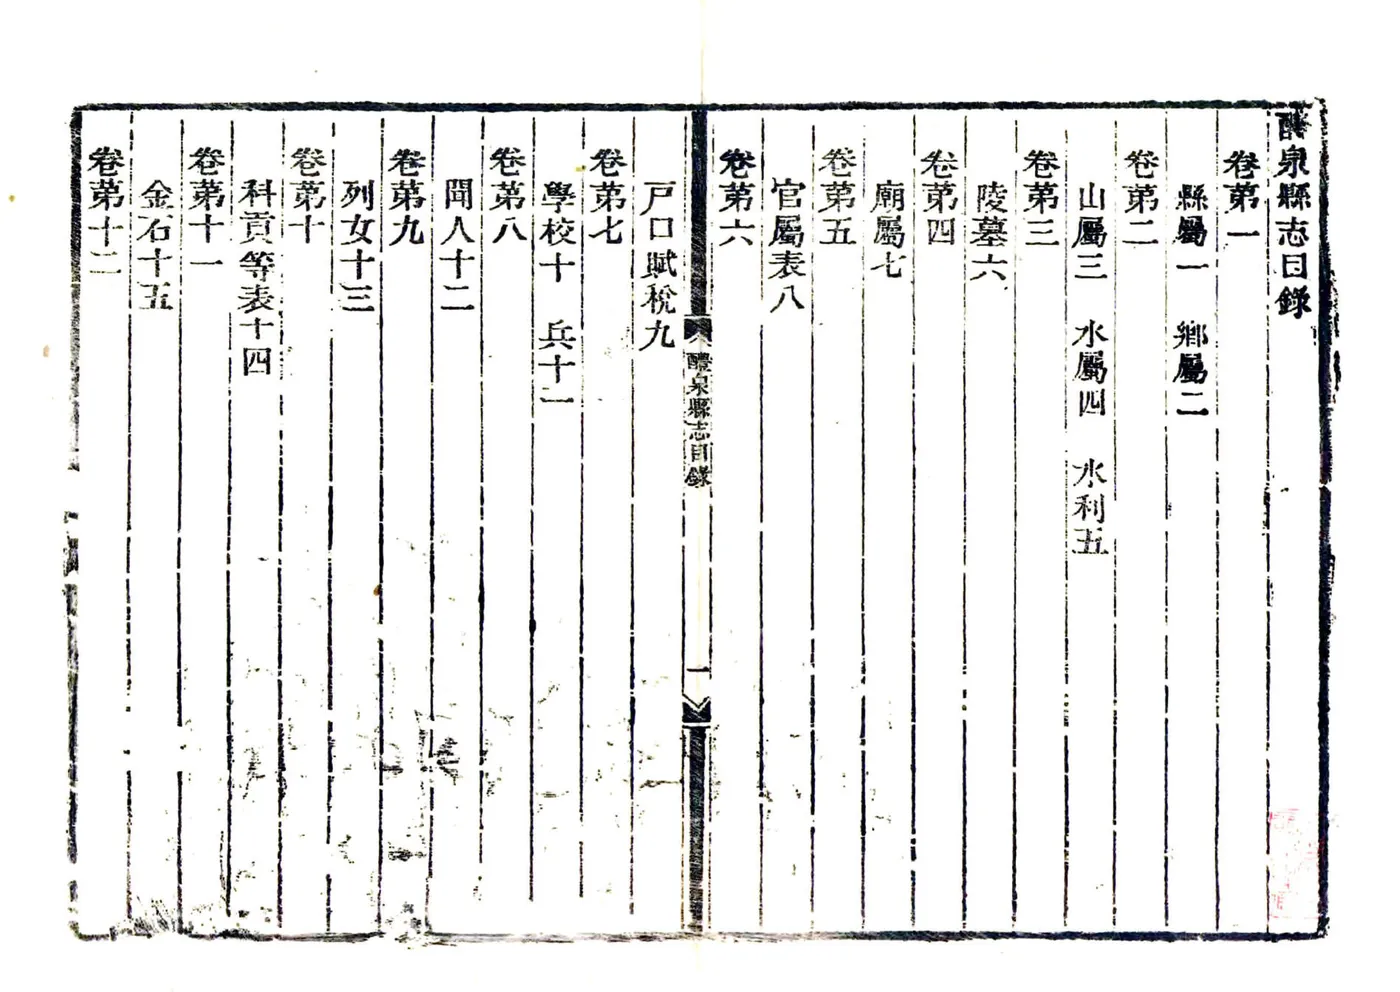 醴泉縣志目錄
卷第一
縣屬一　鄉屬二
卷第二
山屬三　水屬四　水利五
卷第三
陵墓六
卷第四
廟屬七
卷第五
官屬表八
卷第六
醴泉縣志目錄　一
戸口賦稅九
卷第七
學校十　兵十一
卷第八
聞人十二
卷第九
列女十三
卷第十
科貢等表十四
卷第十一
金石十五
卷第十二